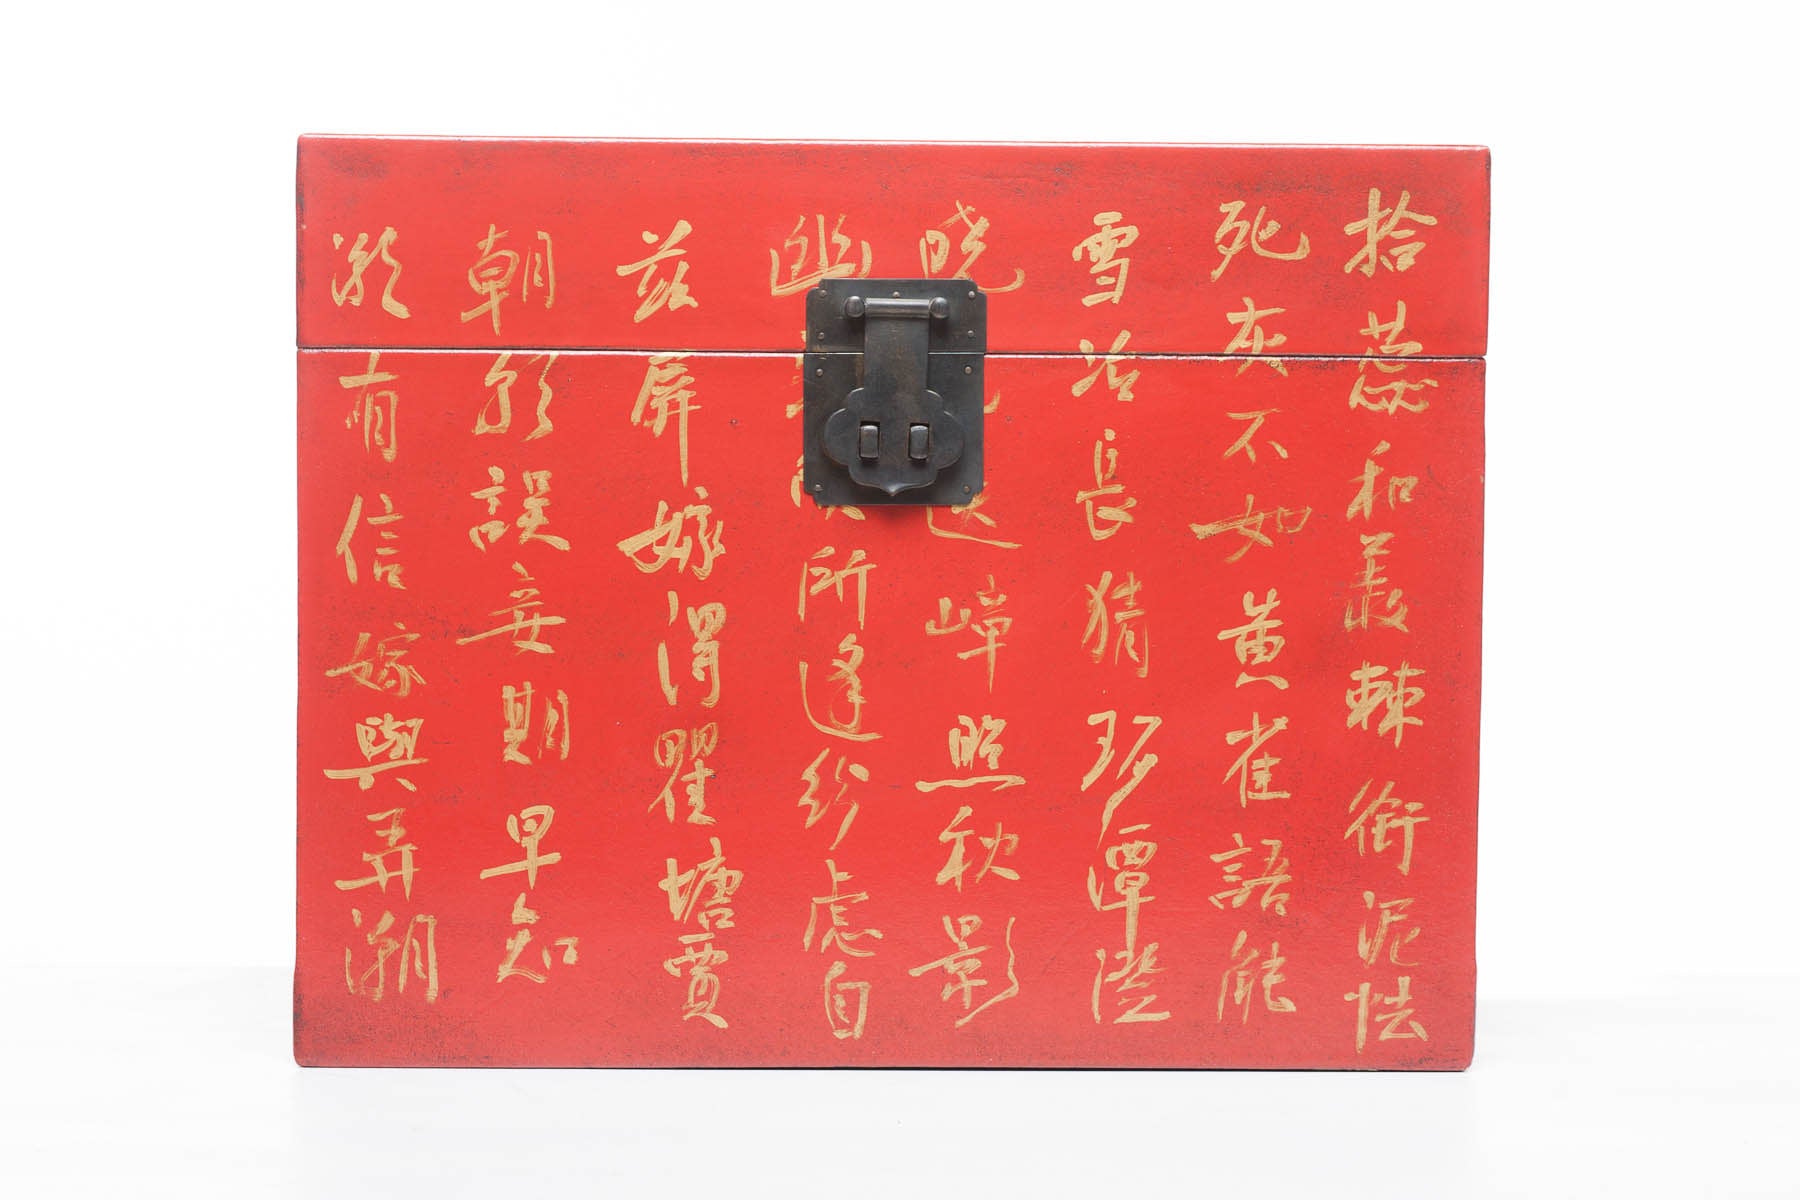 拾蕊和叢棘銜泥怯
死灰不如黄雀語能
雪冶長猜 潭澄
晓 送嶂照秋影
幽 所逢紛慮自
兹屏 嫁得瞿塘賈
朝朝誤妾期早知
潮有信嫁與弄潮